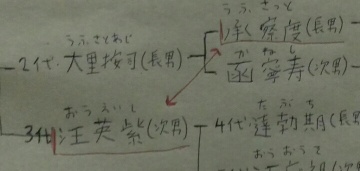 うふさっと
承察度(長男)
うふさとあじ
2代・大里按司(長男)
かねし
函寧寿(次男)
おうえいし
3代 汪英紫(次男)
たぶち
4代・達勃期(長男)
おうおうそ